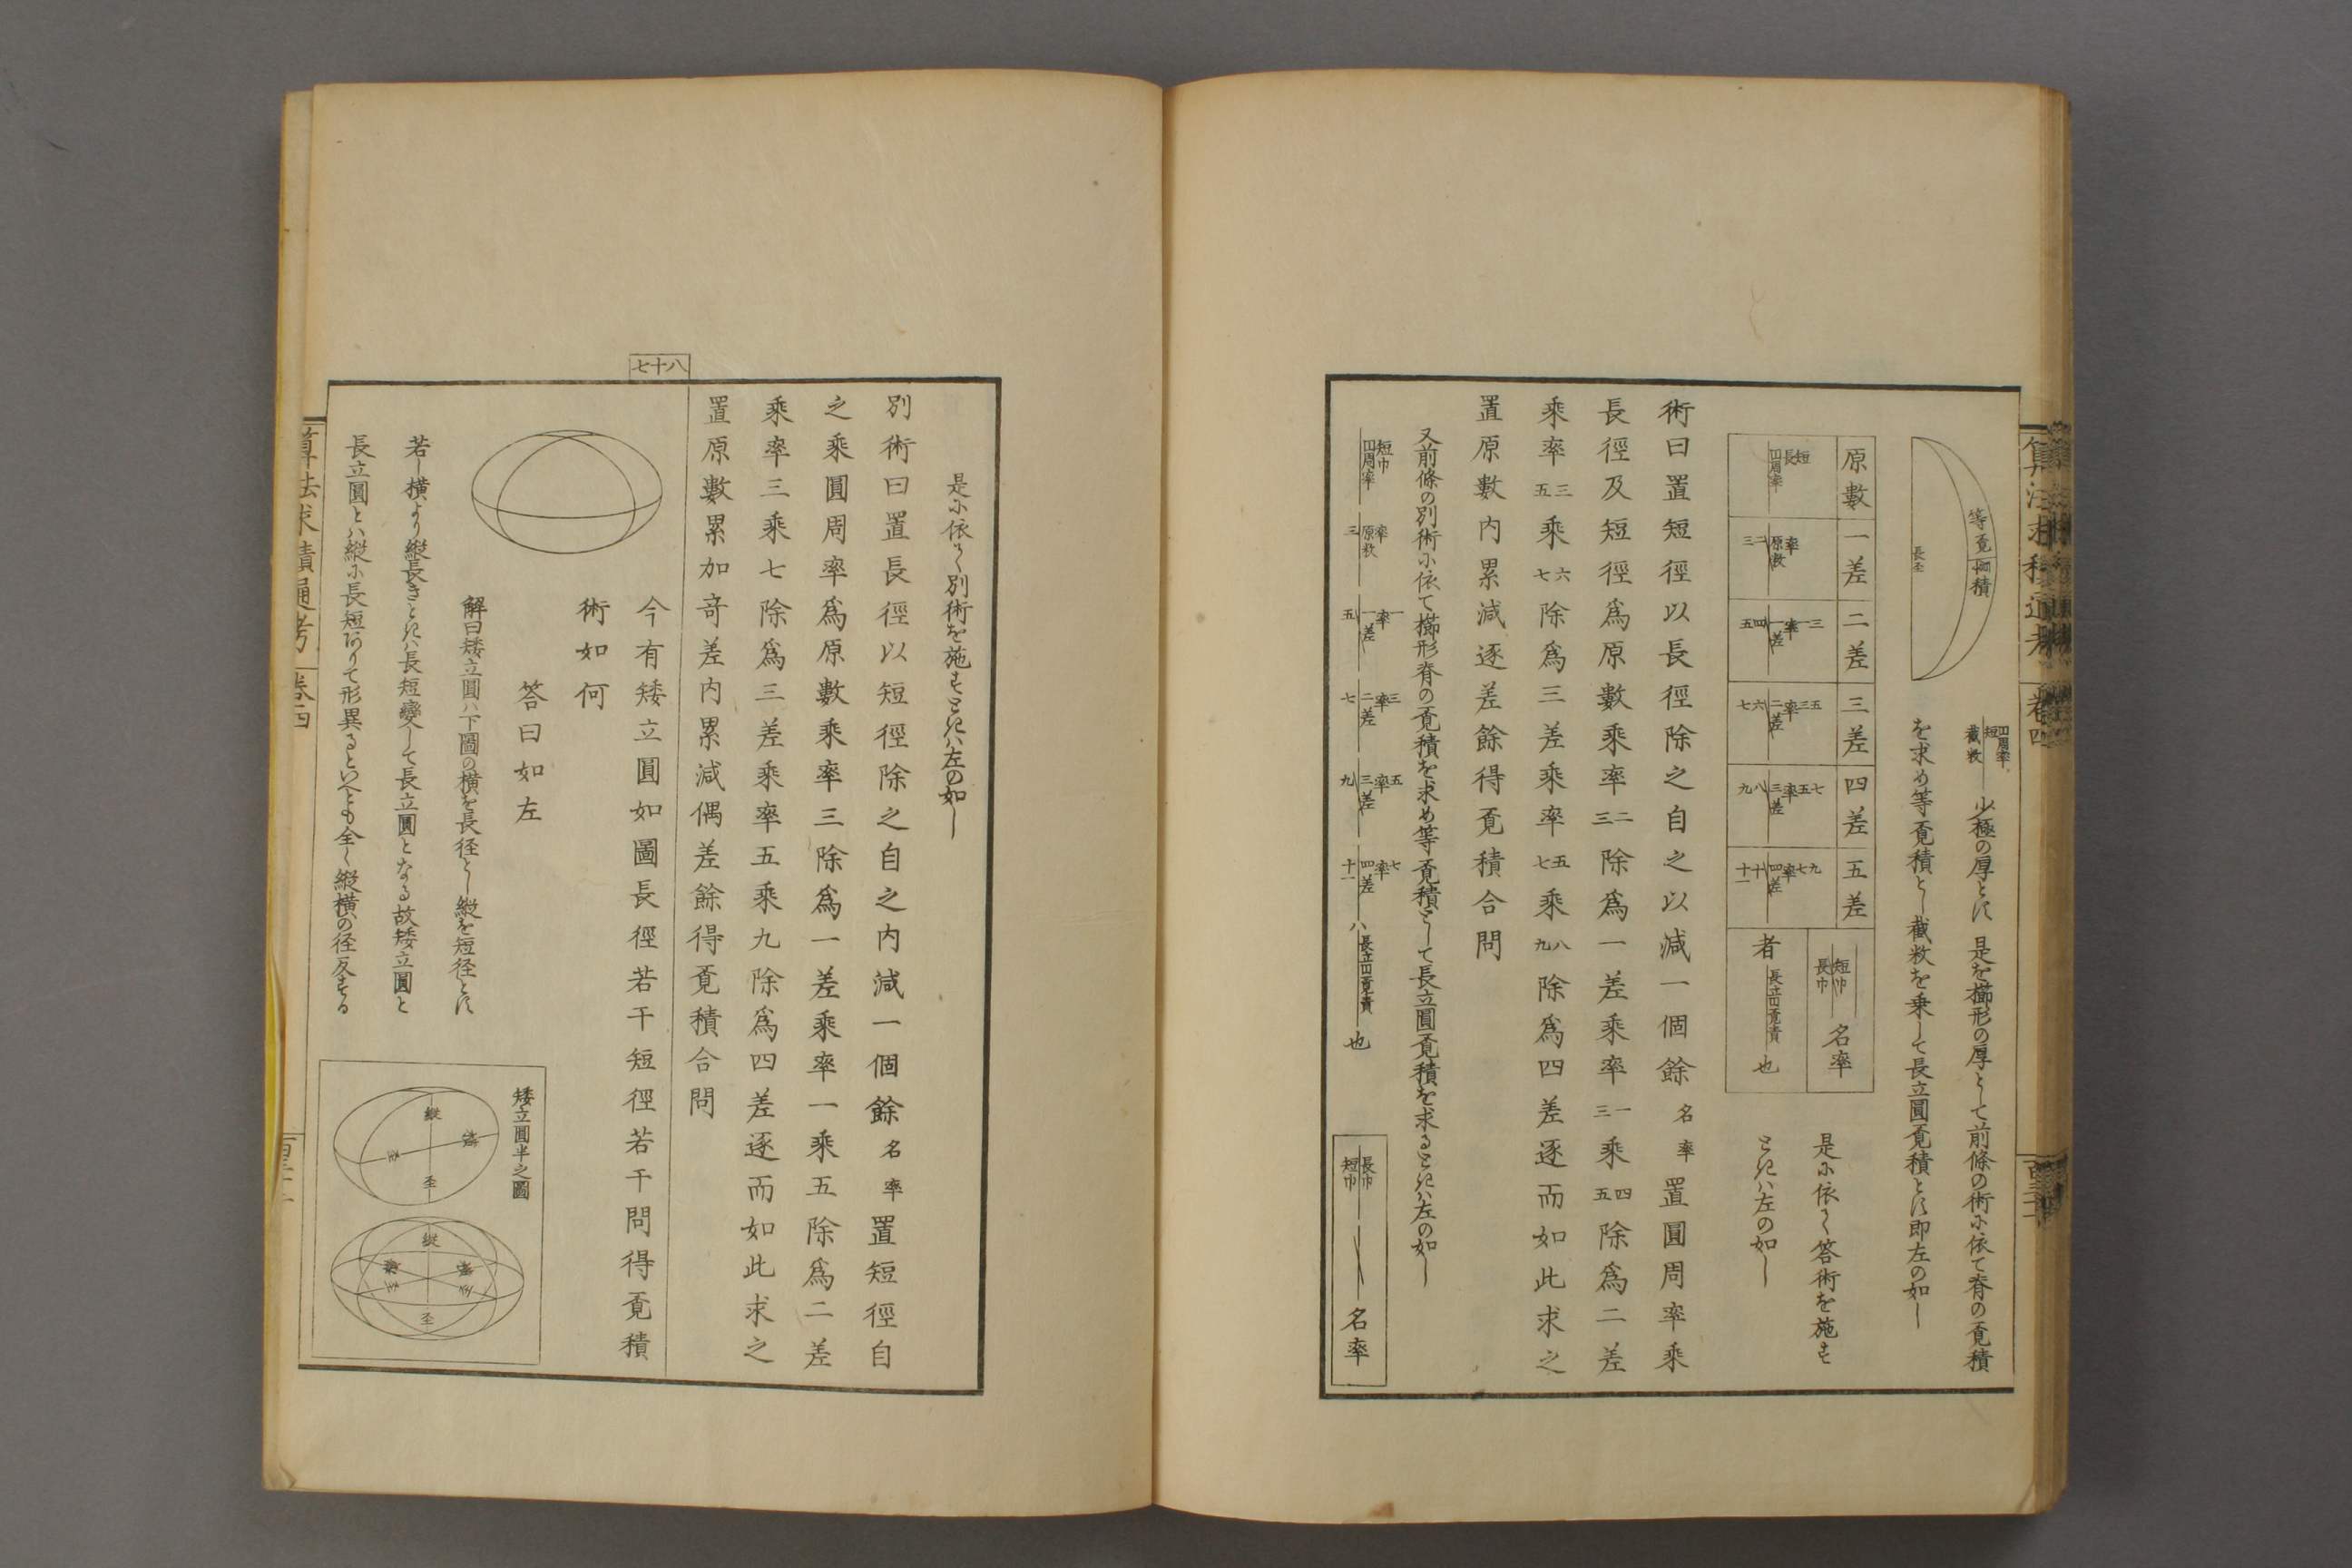 算法求積通考 卷四
等覔積
長至
截数
短
円周率
少極の厚とす 是を櫛形の厚として前條の術に依て脊の覔積
を求め等覔積とし截数を乗して長立圓覔積とす即左の如し
原數 一差 二差 三差 四差 五差
短巾
長巾
名率
者 長立円覔責 也
是に依て答術を施す
ときハ左の如し
術曰置短徑以長徑除之自之以減一個餘名率置圓周率乘
長徑及短徑爲原數乘率二三除爲一差乘率一三乘四五除爲二差
乘率三五乘六七除爲三差乘率五七乘八九除爲四差逐而如此求之
置原數内累減逐差餘得覔積合問
又前條の別術に依て櫛形脊の覔積を求め等覔積として長立圓覔積を求るときハ左の如し
短巾
円周率
率
原数
三
一率
一差
五
三率
二差
七
五率
三差
九
七率
四差
十一
ハ 長立円覔責 也
長巾
短巾
名率
是に依て別術を施すときハ左の如し
別術曰置長徑以短徑除之自之内減一個餘名率置短徑自
之乘圓周率爲原數乘率三除爲一差乘率一乘五除爲二差
乘率三乘七除爲三差乘率五乘九除爲四差逐而如此求之
置原數累加竒差内累減偶差餘得覔積合問
八十七
今有矮立圓如圖長徑若干短徑若干問得覔積
術如何
答曰如左
解曰矮立圓ハ下圖の横を長径とし縦を短径とす
若し横より縦長きときハ長短變して長立圓となる故矮立圓と
長立圓とハ縦に長短ありて形異るといへとも全く縦横の径反する
矮立圓半之圖
縦
至
縦
至
算法求積通考 卷四